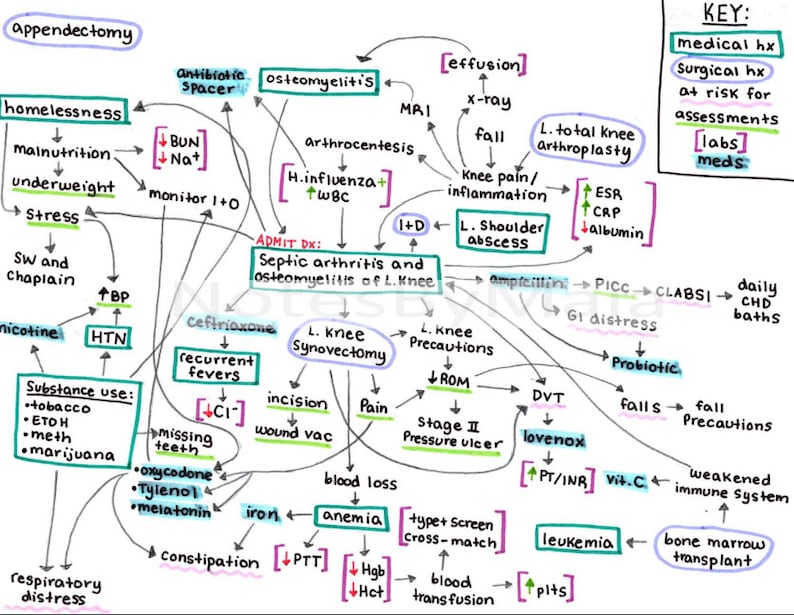 appendectomy
KEY:
medical hx
surgical hx
at risk for
assessments
[labs]
meds
antibiotic
spacer
osteomyelitis
[effusion]
x-ray
MRI
fall
L. total knee
arthroplasty
homelessness
malnutrition
↓ BUN
↓ Na+
underweight
monitor I+O
Stress
SW and
chaplain
arthrocentesis
H. influenza+
↑ WBC
Knee pain/
inflammation
↑ ESR
↑ CRP
↓ albumin
I+D
L. Shoulder
abscess
ADMIT DX:
Septic arthritis and
osteomyelitis of L. Knee
ampicillin
PICC
CLABSI
daily
CHD
baths
GI distress
Probiotic
↑BP
nicotine
HTN
ceftriaxone
recurrent
fevers
[↓Cl-]
L. Knee
Synovectomy
L. Knee
Precautions
↓ ROM
Stage II
Pressure ulcer
DVT
falls
fall
Precautions
lovenox
[↑PT/INR]
vit. C
weakened
immune system
incision
wound vac
Pain
Substance use:
•tobacco
•ETOH
•meth
•marijuana
missing
teeth
•oxycodone
•Tylenol
•melatonin
blood loss
iron
anemia
[type+ screen
cross-match]
leukemia
bone marrow
transplant
constipation
[↓PTT]
↓ Hgb
↓ Hct
blood
transfusion
[↑plts]
respiratory
distress
NotesByMaia